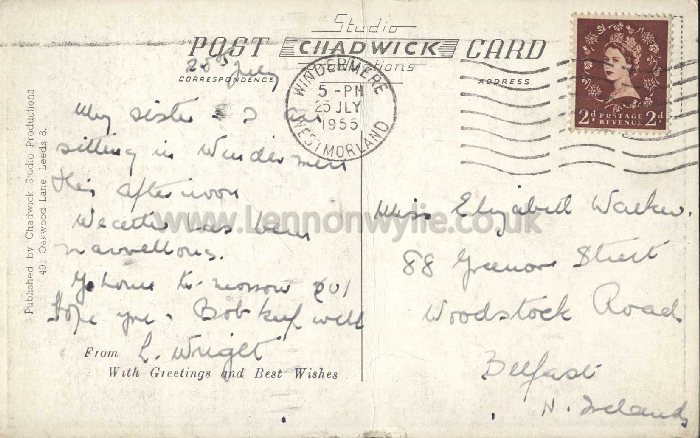 Studio
POST CHADWICK CARD
Productions
CORRESPONDENCE
ADDRESS
25th July
WINDERMERE
5 - PM
25 JLY
1955
WESTMORLAND
2d POSTAGE REVENUE 2d
Published by Chadwick Studio Productions
40, Oakwood Lane, Leeds 8.
My sister & I are
sitting in Windermere
this afternoon
Weather has been
marvellous.
Go home to-morrow
Hope you & Bob keep well
From L. Wright
With Greetings and Best Wishes
Miss Elizabeth Walker.
88 Greenore Street
Woodstock Road
Belfast
N. Ireland
www.Lennonwylie.co.uk